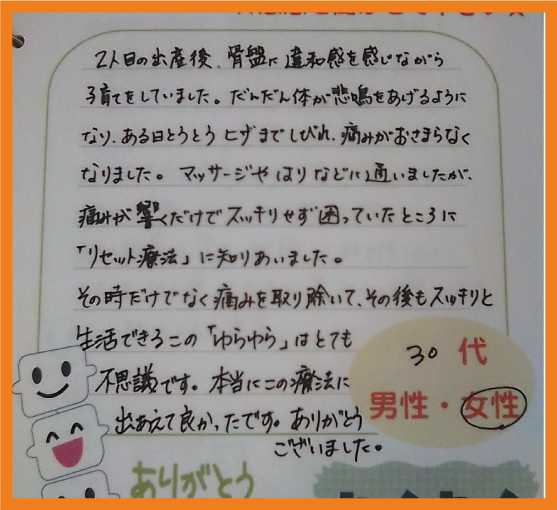 2人目の出産後、骨盤に違和感を感じながら
子育てをしていました。だんだん体が悲鳴をあげるように
なり、ある日とうとうヒザまでしびれ、痛みがおさまらなく
なりました。マッサージやはりなどに通いましたが、
痛みが響くだけでスッキリせず困っていたところに
「リセット療法」に知りあいました。
その時だけでなく痛みを取り除いて、その後もスッキリと
生活できるこの「ゆらゆら」はとても
不思議です。本当にこの療法に
出あえて良かったです。ありがとう
ございました。
30代
男性・女性
ありがとう